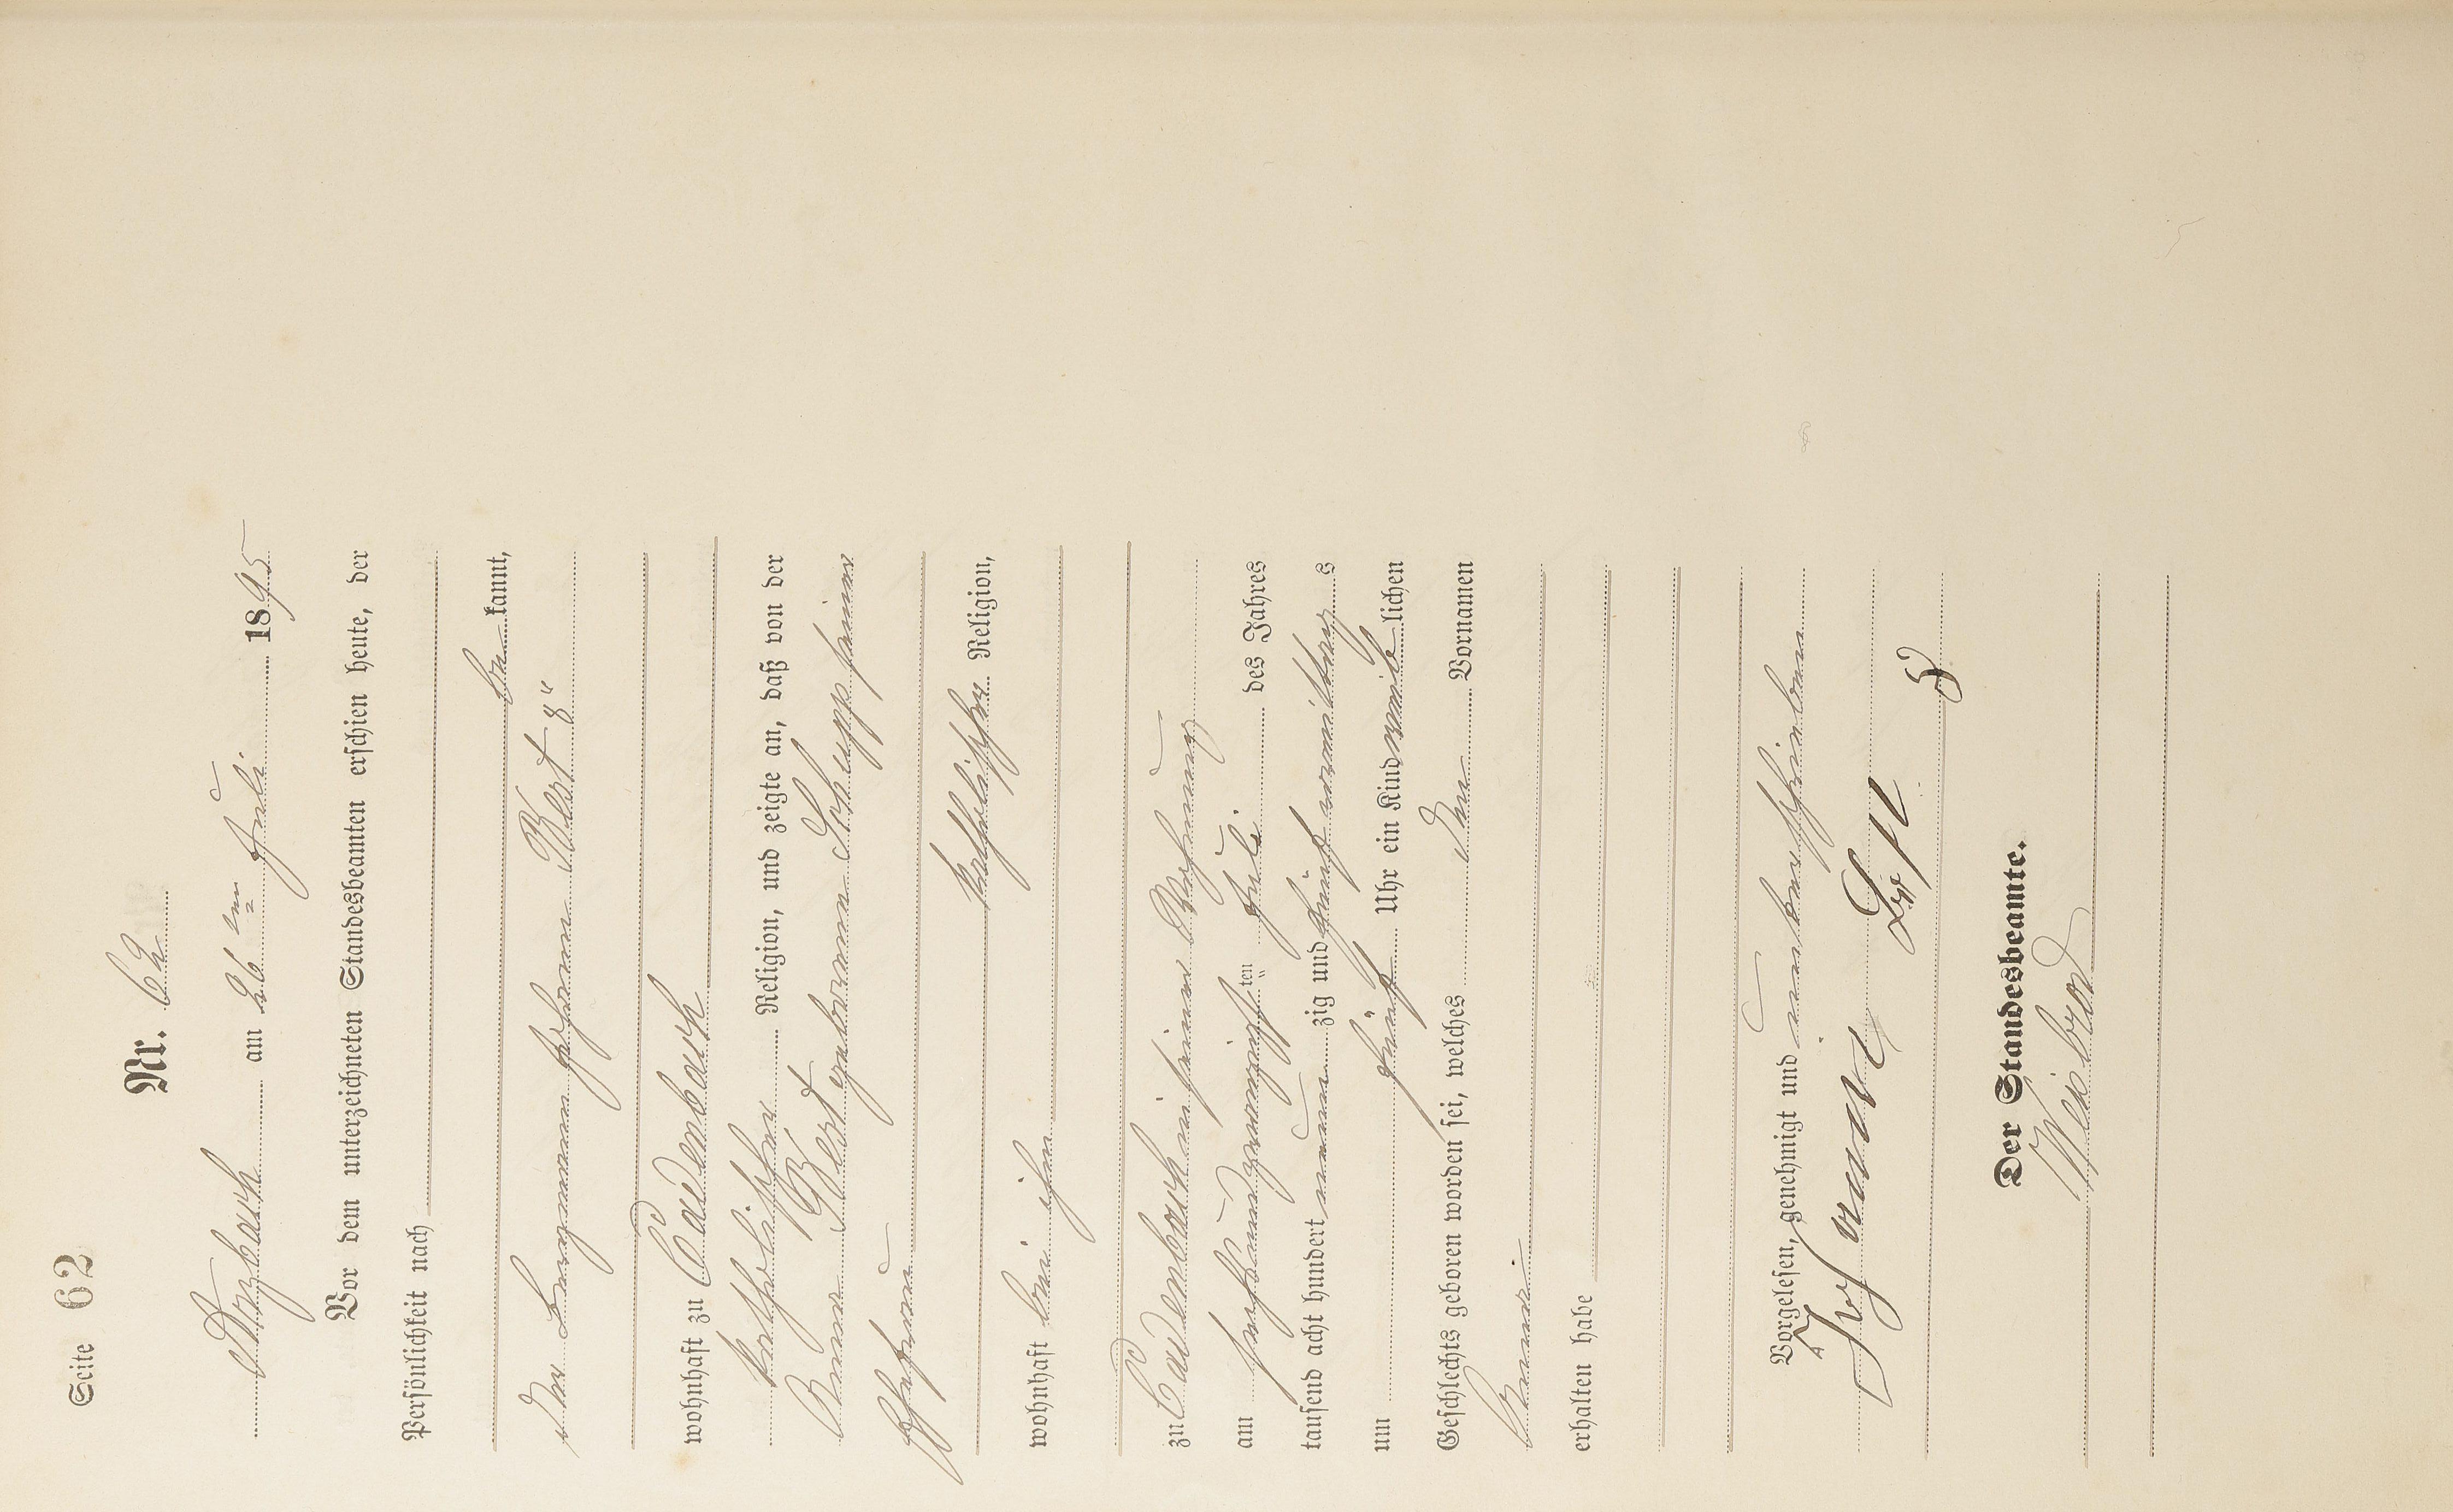 Seite 62
Nr. 62
Arzbach am 26ten Juli 1895
Vor dem unterzeichneten Standesbeamten erschien heute, der
Persönlichkeit nach
be kannt,
der Bergmann Johann Bert 3"
wohnhaft zu Cadenbach
katholischer Religion, und zeigte an, daß von der
Anna Bert geborenen Schupp seiner
Ehefrau
katholischer Religion,
wohnhaft bei ihm
zu Cadenbach in seiner Wohnung
am sechsundzwanzigsten Juli des Jahres
tausend acht hundert neun zig und fünf vormittag s
um fünf Uhr ein Kind weib lichen
Geschlechts geboren worden sei, welches den Vornamen
Anna
erhalten habe
Vorgelesen, genehmigt und unterschrieben
Johann 3
Der Standesbeamte.
Weisbrod